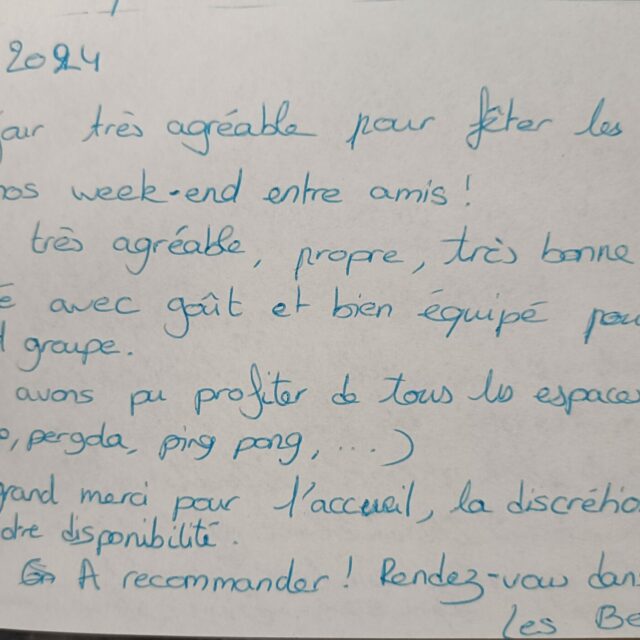 2024
jour très agréable pour fêter les
nos week-end entre amis !
très agréable, propre, très bonne
é avec goût et bien équipé pou
d groupe.
avons pu profiter de tous les espaces
o, pergola, ping pong, ....)
grand merci pour l'accueil, la discrétio
otre disponibilité.
A recommander ! Rendez-vous dan
les Be